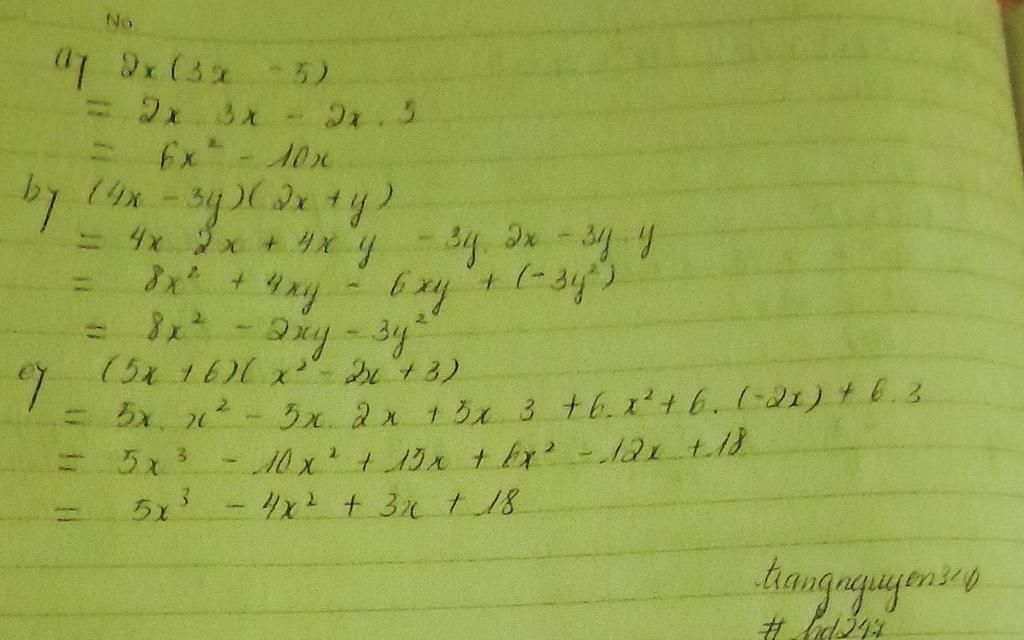 No
a) 2x(3x - 5)
= 2x . 3x - 2x . 5
= 6x² - 10x
b) (4x - 3y)(2x + y)
= 4x . 2x + 4x . y - 3y . 2x - 3y . y
= 8x² + 4xy - 6xy + (-3y²)
= 8x² - 2xy - 3y²
c) (5x + 6)(x² - 2x + 3)
= 5x . x² - 5x . 2x + 5x . 3 + 6 . x² + 6 . (-2x) + 6 . 3
= 5x³ - 10x² + 15x + 6x² - 12x + 18
= 5x³ - 4x² + 3x + 18